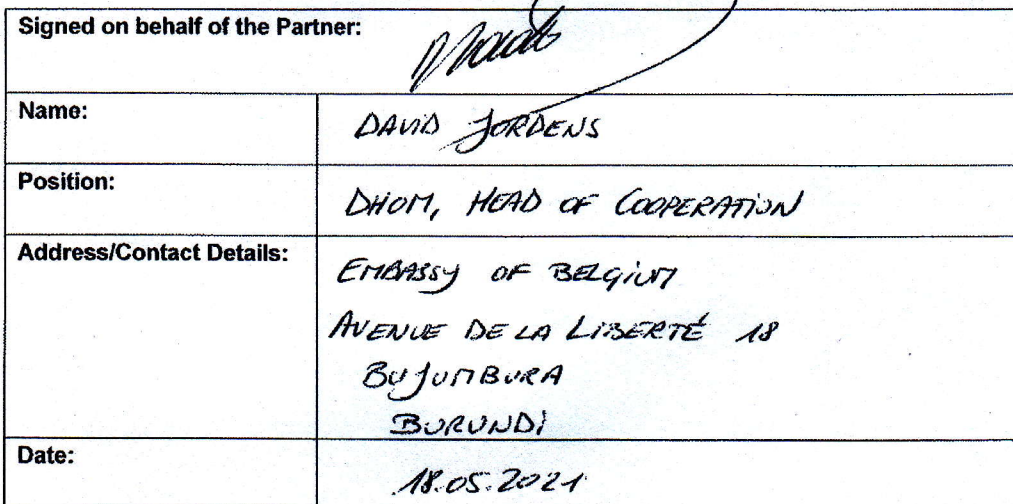 Signed on behalf of the Partner:
Name: DAVID JORDENS
Position: DHOM, HEAD OF COOPERATION
Address/Contact Details: EMBASSY OF BELGIUM
AVENUE DE LA LIBERTÉ 18
BUJUMBURA
BURUNDI
Date: 18.05.2021